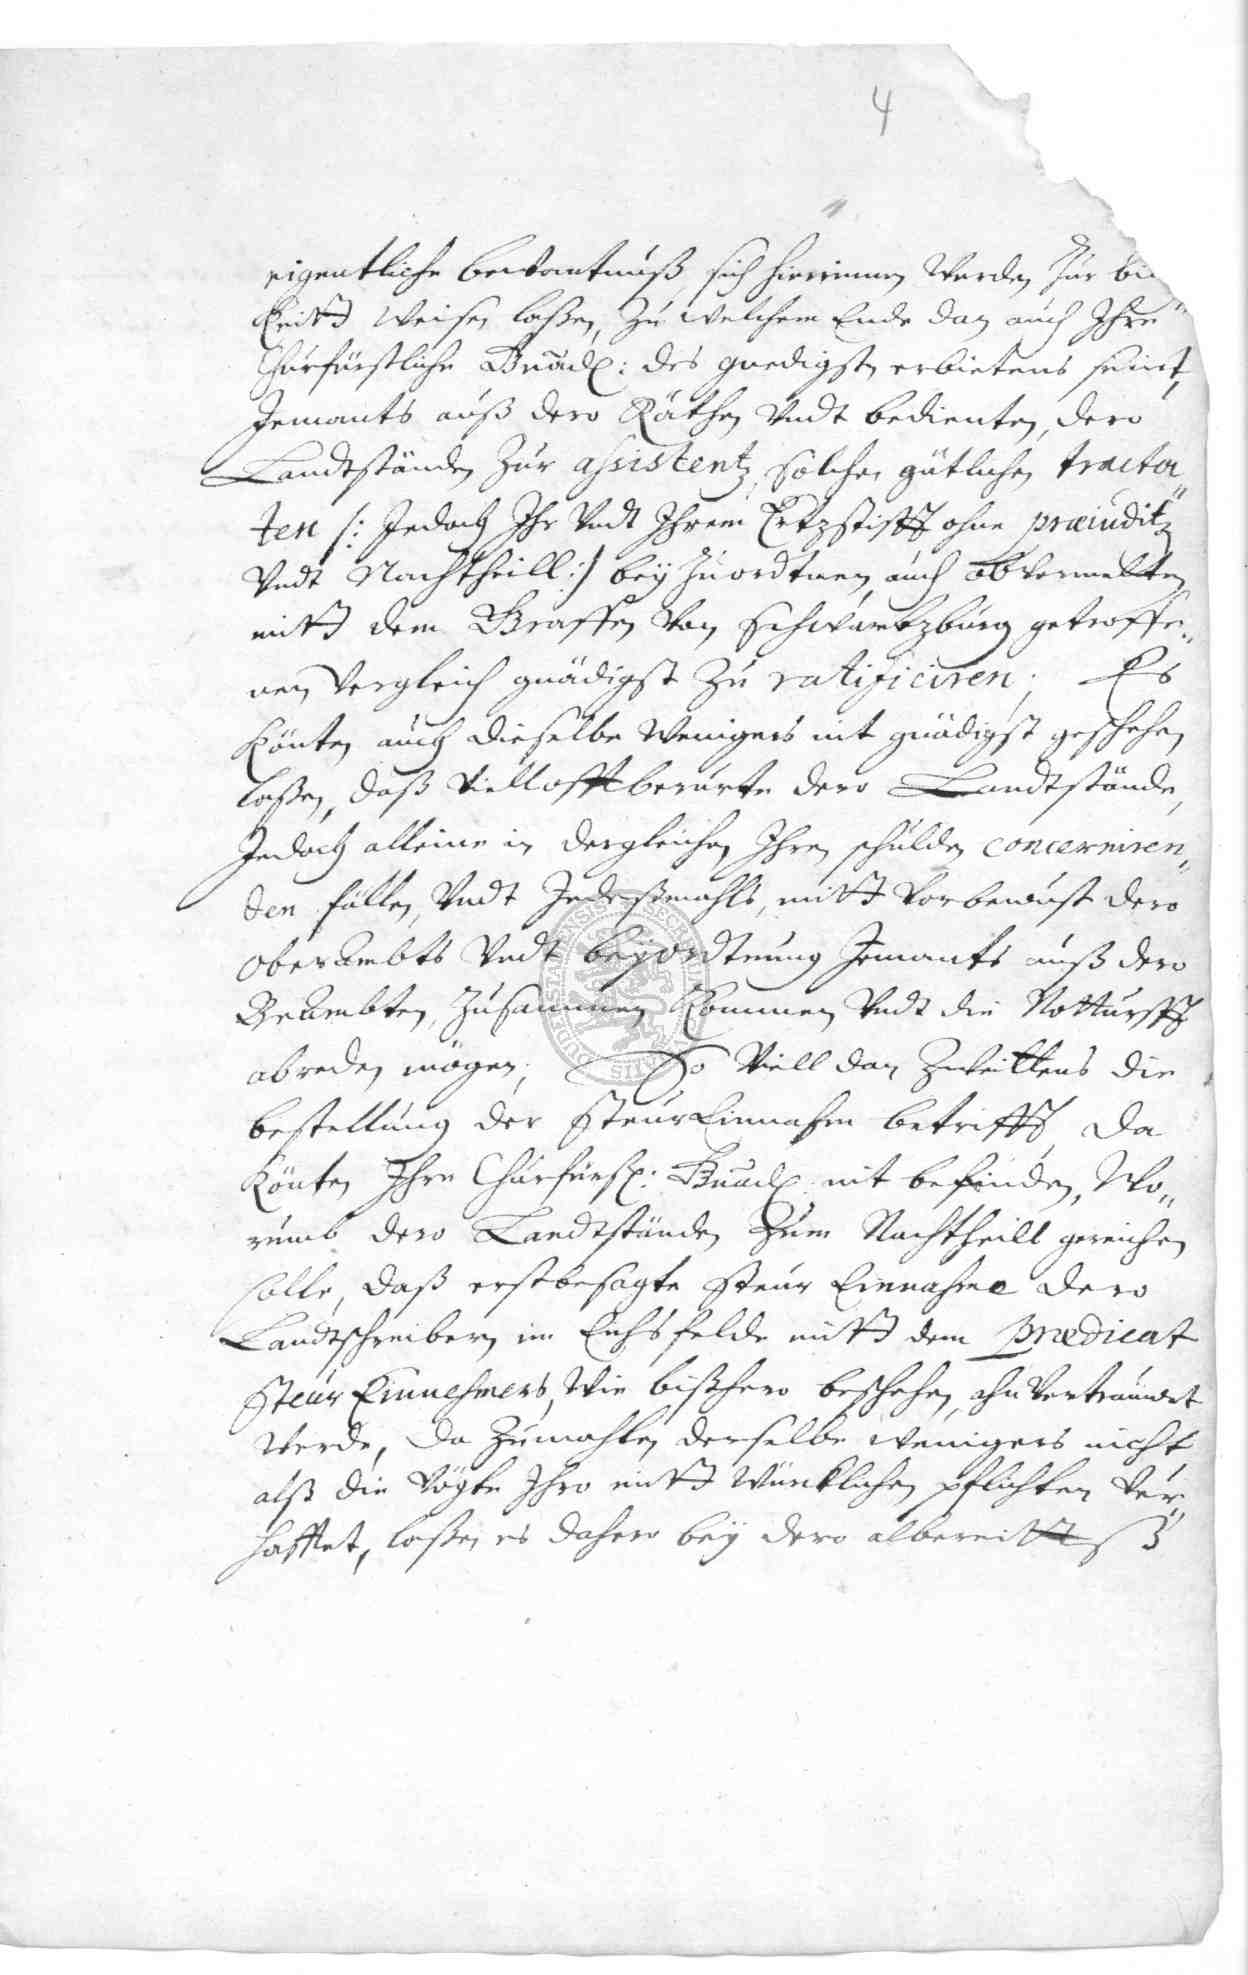 4
eigentliche bekantnuß, sich hierinnen werden zur bil
keitt weisen laßen, zu welchem Ende dan auch Ihre
Churfürstliche Gnadl: des gnedigsten erbietens seint,
Jemants auß dero Räthen Vndt bedienten, dero
Landtständen zur assistentz, solcher gütlichen tracta„
ten /: Jedoch Ihr Vndt Ihrem Ertzstifft ohne præiuditz
Vndt Nachtheill :/ bey zu ordtnen, auch obvermelten
mitt dem Graffen von Schwartzburg getroffe„
nen Vergleich gnädigst zu ratificiren; Es
Könten auch dieselbe wenigers nit gnädigst geschehen
laßen, daß Viellofftberürte dero Landtstände,
Jedoch alleine in dergleichen Ihren schulden concerniren„
den fällen, Vndt Jedeßmahls, mitt Vorbewust dero
OberAmbts Vndt beyordtnung Jemants auß dero
Beambten, zusammen Kommen Vndt die Notturfft
abreden mögen; So Viell dan Zweittens die
bestellung der SteurEinnahm betrifft, da
Könten Ihre Churfürstl: Gnadl: nit befinden, Wo„
rumb dero Landtständen zum Nachtheill gereichen
solle, daß erstbesagte Steur Einnahme dero
Landtschreibern im Eichsfelde mitt dem prædicat
Steur Einnehmers, wie bißhero beschehen, ahnvertrauwet
werde, da zumahlen derselbe wenigers nicht
alß die Vögte Ihro mitt würcklichen pflichten Ver„
hafftet, laßen es dahero bey dero albereitt
SECR
DUDERSTADENSIS